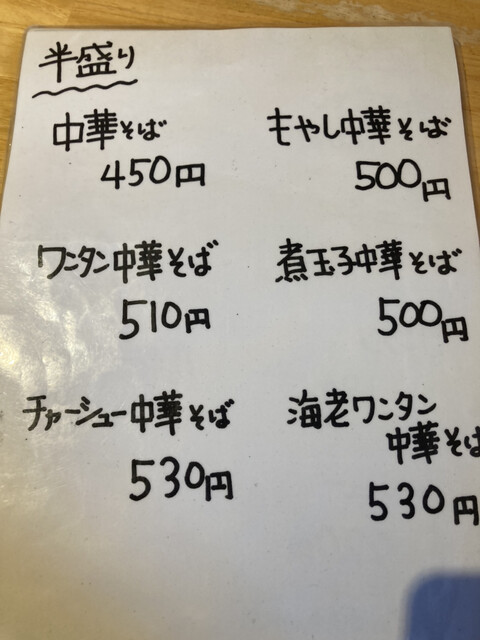 半盛り
中華そば
450円
もやし中華そば
500円
ワンタン中華そば
510円
煮玉子中華そば
500円
チャーシュー中華そば
530円
海老ワンタン
中華そば
530円